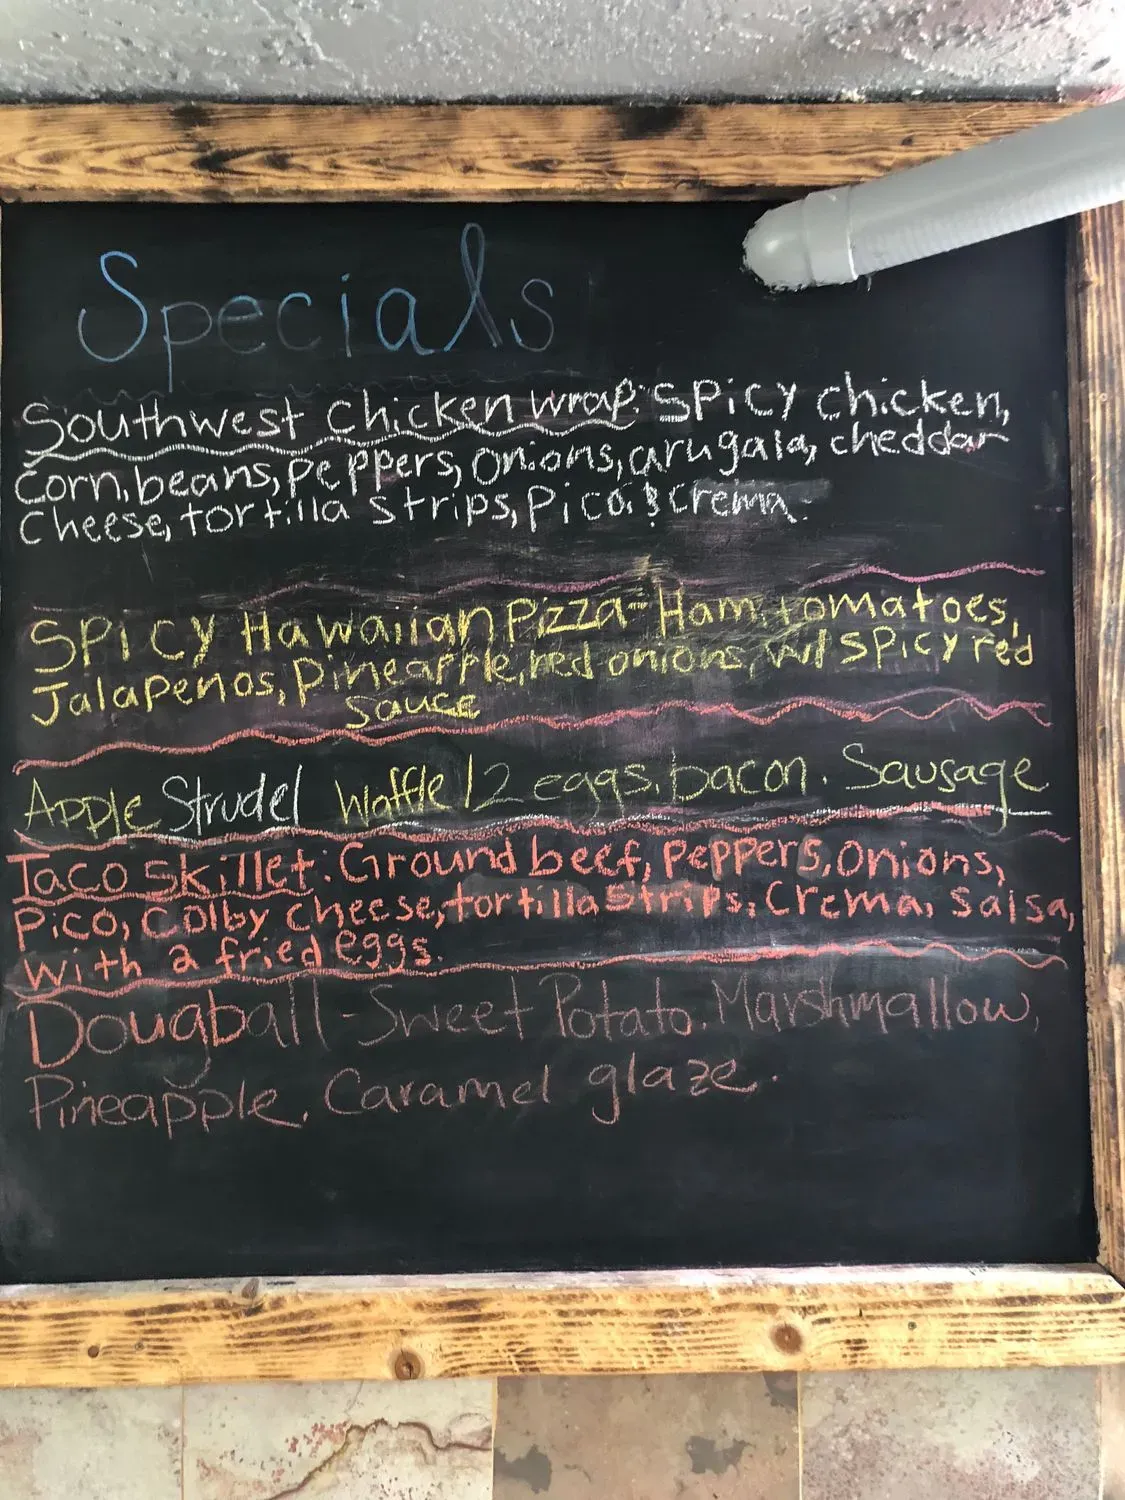 Specials
Southwest Chicken wrap: Spicy chicken,
Corn, beans, peppers, onions, arugala, cheddar
Cheese, tortilla strips, Pico & Crema.
Spicy Hawaiian Pizza - Ham, tomatoes,
Jalapenos, Pineapple, red onions, w/ spicy red
sauce
Apple Strudel Waffle / 2 eggs, bacon. Sausage
Taco Skillet: Ground beef, peppers, onions,
Pico, Colby cheese, tortilla strips, Crema, Salsa,
with a fried eggs.
Dougball - Sweet Potato. Marshmallow,
Pineapple, Caramel glaze.